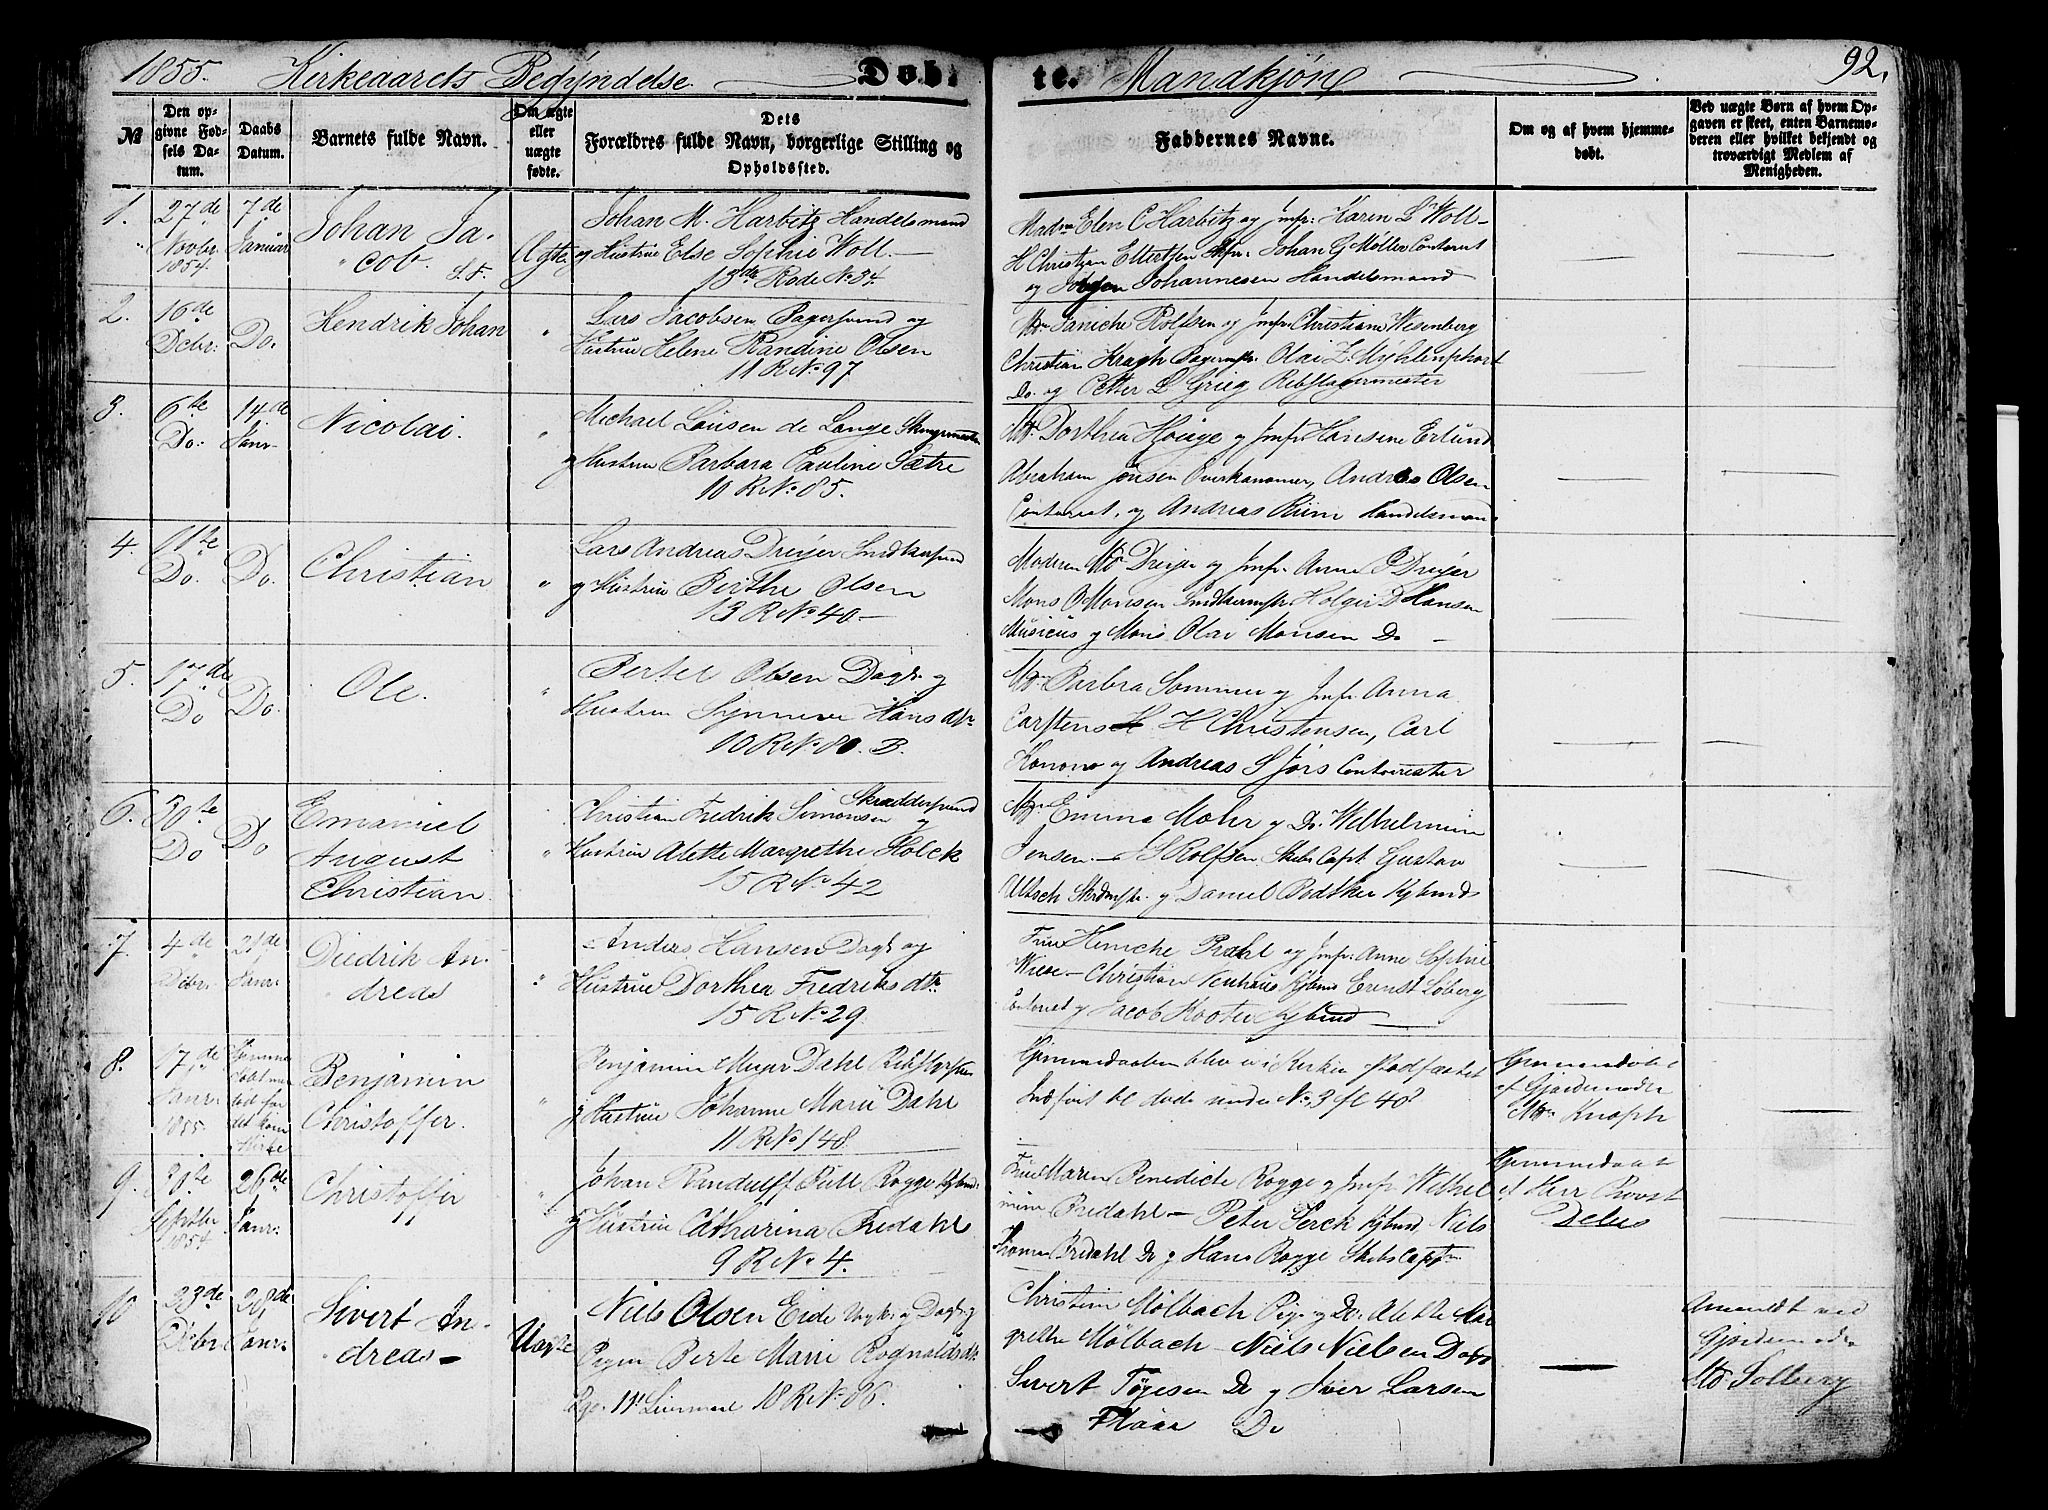 1855. Kirkeaarets Begÿndelse. Døb- te. Mandkjøn 92.
№
Den op-
givne Fød-
sels Da-
tum.
Daabs
Datum.
Barnets fulde Navn.
Om ægte
eller
uægte
fødte.
Dets
Forældres fulde Navn, borgerlige Stilling og
Opholdssted.
Faddernes Navne.
Om og af hvem hjemme-
døbt.
Ved uægte Børn af hvem Op-
gaven er skeet, enten Barnemo-
deren eller hvilket bekjendt og
troværdigt Medlem af
Menigheden.
1.
27de
Novbr
1854.
7de
Januar
Johan Ja-
cob.
Ægte
Johan M. Harbitz Handelsmand
og Hustrue Else Sophie Woll.
18de Rode No 34.
Madm Elen C Harbitz og Jmfr: Karin L Woll-
H Christian Ellertsen Johan G Møller Contorist
og Johannessen Handelsmand
2.
16de
Dcbr:
Do.
Hendrik Johan
"
Lars Jacobsen Bagersvend og
Hustrue Helene Randine Olsen
11 R No 97
Rolfsen og Jmfr Christiane Wesenberg
Christian Kragh Bagermstr. Olai
Do. og Petter L Grieg Rebslagermester
3.
6te
Do:
14de
Janr
Nicolai.
"
Michael Lousen de Lange
og Hustrue Barbara Pauline Sætre
10 R No 85.
Md. Dorthea Houge og Jmfr Hansine Erlund
Abraham Jensen Overkanoner, Andreas Olsen
Contorist, og Andreas Riim Handelsman
4.
11te
Do.
Do.
Christian
"
Lars Andreas Dreijer
og Hustrue Birthe Olsen
13 R No 40-
Moderen Md Dreijer og Jmfr: Anne B Dreijer
Mons O Monsen Holger D Hansen
Musicus og Mons Olai Monsen Do
5.
17de
Do
Do.
Ole.
"
Bertel Olsen Dagk. og
Hustrue Synneve Hansdtr
10 R No 80. B.
Md. Barbra Sommer og Jmfr Anna
Carstens H Christensen, Carl
Konow og Andreas S Jørs Contorister
6.
30te
Do
Do
Emanuel
August
Christian
"
Christian Fredrik Simonsen Skræddersvend
og
Hustrue Alette Margrethe Holck
15 R No 42
Md. Emma Mohr og Do. Wilhelmine
Jensen. S Rolfsen Skibs Capt Gustav
og Daniel Kjbmd
7.
4de
Dcbr.
21de
Janr:
Diedrik An-
dreas
"
Anders Hansen Dagk og
Hustrue Dorthea Fredriksdtr
15 R No 29.
Frue Henriche Prahl og Jmfr: Anne Sophie
Wiese - Christian Neuhaus Kjbmd Ernst Løberg
Contorist og Jacob Kjbmd
8.
17de
Janr:
1855.
Benjamin
Christoffer.
"
Benjamin Meyer Dahl
og Hustrue Johanne Marie Dahl
11 R No 148.
Hjemmedaaben blev ei i Kirken stadfæstet
Indført bl. døde under No 3 fol 408
Hjemmedøbt
af Gjordemoder
Md. Knoph
9.
Septbr
1854.
26de
Janr:
Christoffer
"
Johan Randulff Bull Rogge Kjbmd:
og Hustrue Catharina Bredahl
9 R No 4.
Frue Maren Benedicte Rogge og Jmfr Wilhel
mine Bredahl - Peter Kjbmd, Niels
Bredahl Do og Hans Rogge Skibs Captn
Hjemmedøbt
af Herr Provst
10
23de
Dcbr
28de
Janr:
Sivert An-
dreas
Uægte
Niels Olsen Eide Ungk. og Dagk. og
Pigen Berte Marie Rognaldsdtr
18 R No 86.
Christine Mølbach Pige og Do. Alette Mar
grethe Mølbach - Niels Nielsen
Sivert Tøgesen Do og Iver Larsen
Do
Anmeldt ved
Gjordemoder
Md. Solberg